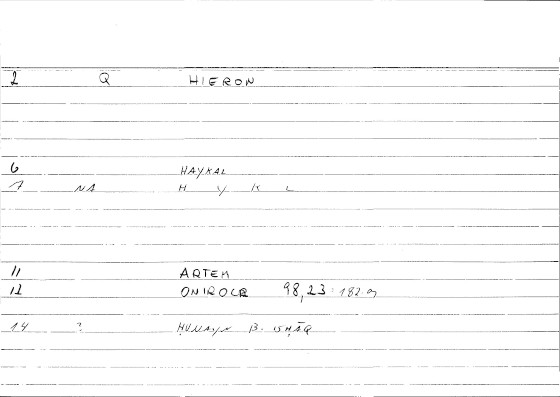 2 Q HIERON
6 HAYKAL
7 NA H Y K L
11 ARTEM
12 ONIROCR 98,23:182.9
14 ? ḤUNAYN B. ISḤĀQ